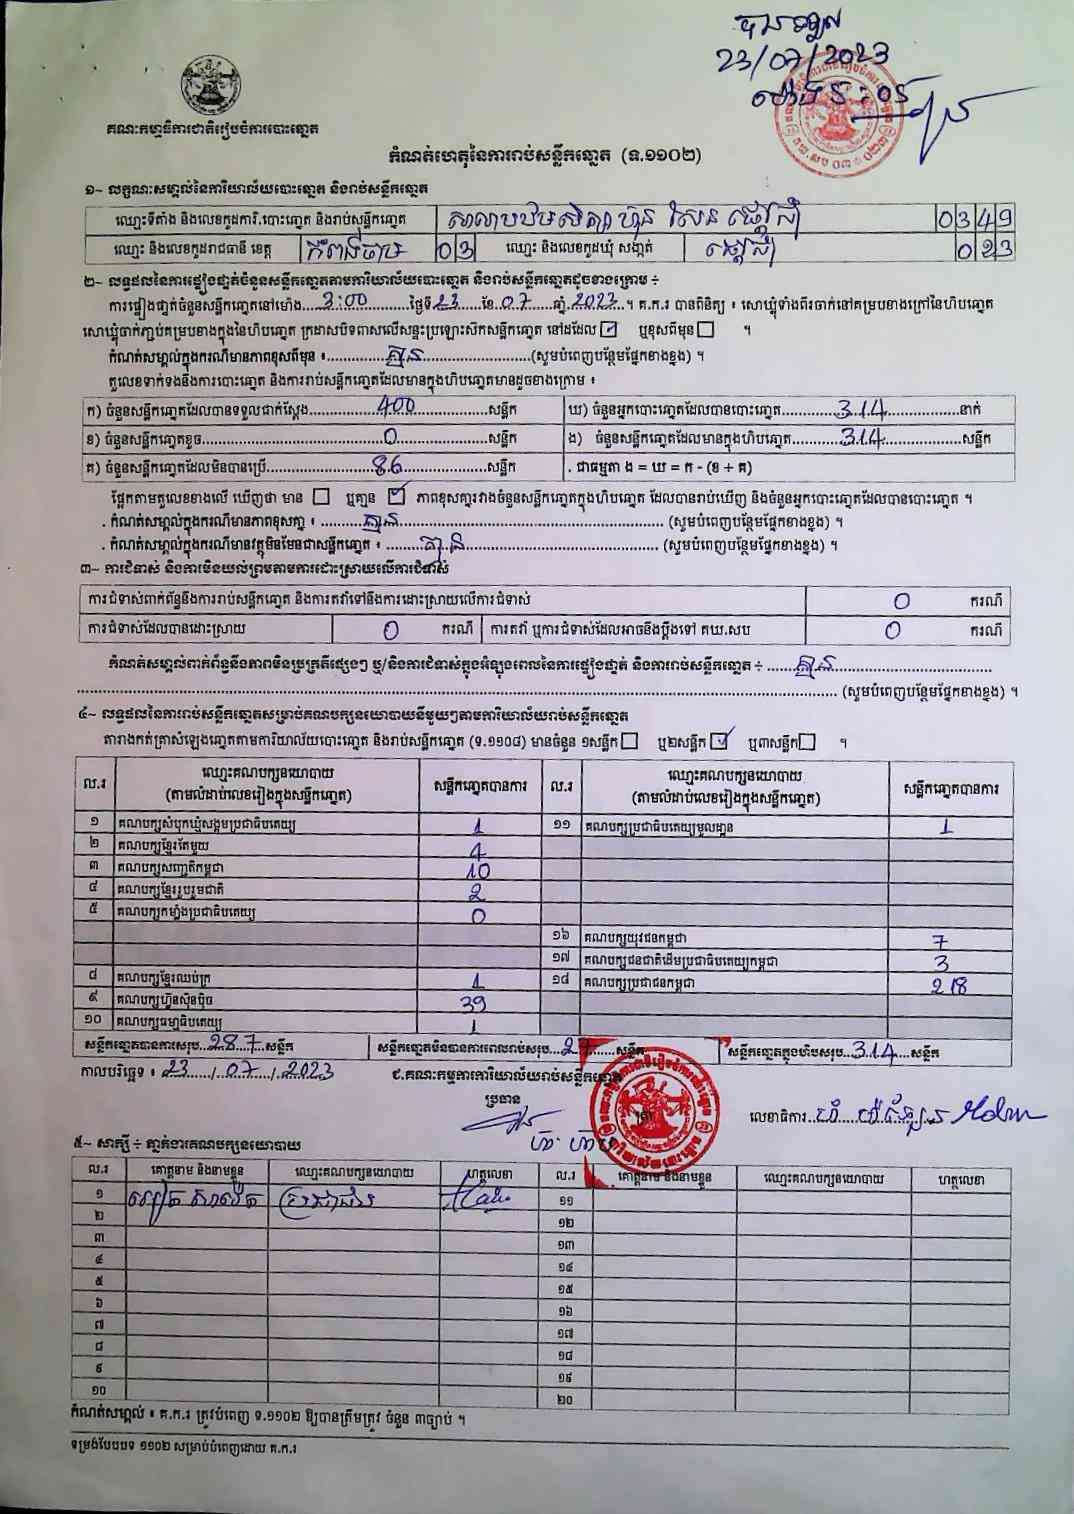 បានទទួល
23/07/2023
ម៉ោង 5:05
គណៈកម្មាធិការជាតិរៀបចំការបោះឆ្នោត
កំណត់ហេតុនៃការរាប់សន្លឹកឆ្នោត (ទ.១១០២)
១~ លក្ខណៈសម្គាល់នៃការិយាល័យបោះឆ្នោត និងរាប់សន្លឹកឆ្នោត
ឈ្មោះទីតាំង និងលេខកូដការិ.បោះឆ្នោត និងរាប់សន្លឹកឆ្នោត សាលាបឋមសិក្សា ហ៊ុន សែន 0349
ឈ្មោះ និងលេខកូដរាជធានី ខេត្ត កំពង់ចាម 03 ឈ្មោះ និងលេខកូដឃុំ សង្កាត់
២~ លទ្ធផលនៃការផ្ទៀងផ្ទាត់ចំនួនសន្លឹកឆ្នោតតាមការិយាល័យបោះឆ្នោត និងរាប់សន្លឹកឆ្នោតដូចខាងក្រោម ៖
ការផ្ទៀងផ្ទាត់ចំនួនសន្លឹកឆ្នោតនៅម៉ោង 3:00 ថ្ងៃទី 23 ខែ 07 ឆ្នាំ 2023 ។ គ.ក.រ បានពិនិត្យ ៖ សោឃ្មុំទាំងពីរចាក់នៅគម្របខាងក្រៅនៃហិបឆ្នោត
សោឃ្មុំចាក់ភ្ជាប់គម្របខាងក្នុងនៃហិបឆ្នោត ក្រដាសបិទពាសលើសន្ទះប្រឡោះស៊កសន្លឹកឆ្នោត នៅដដែល ☑ ឬខុសពីមុន ☐ ។
កំណត់សម្គាល់ក្នុងករណីមានភាពខុសពីមុន ៖ គ្មាន (សូមបំពេញបន្ថែមផ្នែកខាងខ្នង) ។
តួលេខទាក់ទងនឹងការបោះឆ្នោត និងការរាប់សន្លឹកឆ្នោតដែលមានក្នុងហិបឆ្នោតមានដូចខាងក្រោម ៖
ក) ចំនួនសន្លឹកឆ្នោតដែលបានទទួលជាក់ស្តែង 400 សន្លឹក ឃ) ចំនួនអ្នកបោះឆ្នោតដែលបានបោះឆ្នោត 314 នាក់
ខ) ចំនួនសន្លឹកឆ្នោតខូច 0 សន្លឹក ង) ចំនួនសន្លឹកឆ្នោតដែលមានក្នុងហិបឆ្នោត 314 សន្លឹក
គ) ចំនួនសន្លឹកឆ្នោតដែលមិនបានប្រើ 86 សន្លឹក . ជាធម្មតា ង = ឃ = ក - (ខ + គ)
ផ្អែកតាមតួលេខខាងលើ ឃើញថា មាន ☐ ឬគ្មាន ☑ ភាពខុសគ្នារវាងចំនួនសន្លឹកឆ្នោតក្នុងហិបឆ្នោត ដែលបានរាប់ឃើញ និងចំនួនអ្នកបោះឆ្នោតដែលបានបោះឆ្នោត ។
. កំណត់សម្គាល់ក្នុងករណីមានភាពខុសគ្នា ៖ គ្មាន (សូមបំពេញបន្ថែមផ្នែកខាងខ្នង) ។
. កំណត់សម្គាល់ក្នុងករណីមានវត្ថុមិនមែនជាសន្លឹកឆ្នោត ៖ គ្មាន (សូមបំពេញបន្ថែមផ្នែកខាងខ្នង) ។
៣~ ការជំទាស់ និងការមិនយល់ព្រមតាមការដោះស្រាយលើការជំទាស់
ការជំទាស់ពាក់ព័ន្ធនឹងការរាប់សន្លឹកឆ្នោត និងការតវ៉ាទៅនឹងការដោះស្រាយលើការជំទាស់ 0 ករណី
ការជំទាស់ដែលបានដោះស្រាយ 0 ករណី ការតវ៉ា ឬការជំទាស់ដែលអាចនឹងប្តឹងទៅ គឃ.សប 0 ករណី
កំណត់សម្គាល់ពាក់ព័ន្ធនឹងភាពមិនប្រក្រតីផ្សេងៗ ឬ/និងការជំទាស់ក្នុងអំឡុងពេលនៃការផ្ទៀងផ្ទាត់ និងការរាប់សន្លឹកឆ្នោត ៖ គ្មាន
(សូមបំពេញបន្ថែមផ្នែកខាងខ្នង) ។
៤~ លទ្ធផលនៃការរាប់សន្លឹកឆ្នោតសម្រាប់គណបក្សនយោបាយនីមួយៗតាមការិយាល័យរាប់សន្លឹកឆ្នោត
តារាងកត់ត្រាសំឡេងឆ្នោតតាមការិយាល័យបោះឆ្នោត និងរាប់សន្លឹកឆ្នោត (ទ.១១០៨) មានចំនួន ១សន្លឹក ☐ ឬ២សន្លឹក ☑ ឬ៣សន្លឹក ☐ ។
ល.រ ឈ្មោះគណបក្សនយោបាយ (តាមលំដាប់លេខរៀងក្នុងសន្លឹកឆ្នោត) សន្លឹកឆ្នោតបានការ ល.រ ឈ្មោះគណបក្សនយោបាយ (តាមលំដាប់លេខរៀងក្នុងសន្លឹកឆ្នោត) សន្លឹកឆ្នោតបានការ
១ គណបក្សសំបុកឃ្មុំសង្គមប្រជាធិបតេយ្យ 1 ១១ គណបក្សប្រជាធិបតេយ្យមូលដ្ឋាន 1
២ គណបក្សខ្មែរតែមួយ 4
៣ គណបក្សសញ្ជាតិកម្ពុជា 10
៤ គណបក្សខ្មែររួបរួមជាតិ 2
៥ គណបក្សកម្លាំងប្រជាធិបតេយ្យ 0
១៦ គណបក្សយុវជនកម្ពុជា 7
១៧ គណបក្សជនជាតិដើមប្រជាធិបតេយ្យកម្ពុជា 3
៨ គណបក្សខ្មែរឈប់ក្រ 1 ១៨ គណបក្សប្រជាជនកម្ពុជា 218
៩ គណបក្សហ្វ៊ុនស៊ិនប៉ិច 39
១០ គណបក្សធម្មាធិបតេយ្យ 1
សន្លឹកឆ្នោតបានការសរុប 287 សន្លឹក សន្លឹកឆ្នោតមិនបានការពេលរាប់សរុប 27 សន្លឹក សន្លឹកឆ្នោតក្នុងហិបសរុប 314 សន្លឹក
កាលបរិច្ឆេទ ៖ 23/07/2023 ជ.គណៈកម្មការការិយាល័យរាប់សន្លឹកឆ្នោត
ប្រធាន
លេខាធិការ
៥~ សាក្សី ៖ ភ្នាក់ងារគណបក្សនយោបាយ
ល.រ គោត្តនាម និងនាមខ្លួន ឈ្មោះគណបក្សនយោបាយ ហត្ថលេខា ល.រ គោត្តនាម និងនាមខ្លួន ឈ្មោះគណបក្សនយោបាយ ហត្ថលេខា
១ ប្រជាជន ១១
២ ១២
៣ ១៣
៤ ១៤
៥ ១៥
៦ ១៦
៧ ១៧
៨ ១៨
៩ ១៩
១០ ២០
កំណត់សម្គាល់ ៖ គ.ក.រ ត្រូវបំពេញ ទ.១១០២ ឱ្យបានត្រឹមត្រូវ ចំនួន ៣ច្បាប់ ។
ទម្រង់បែបបទ ១១០២ សម្រាប់បំពេញដោយ គ.ក.រ